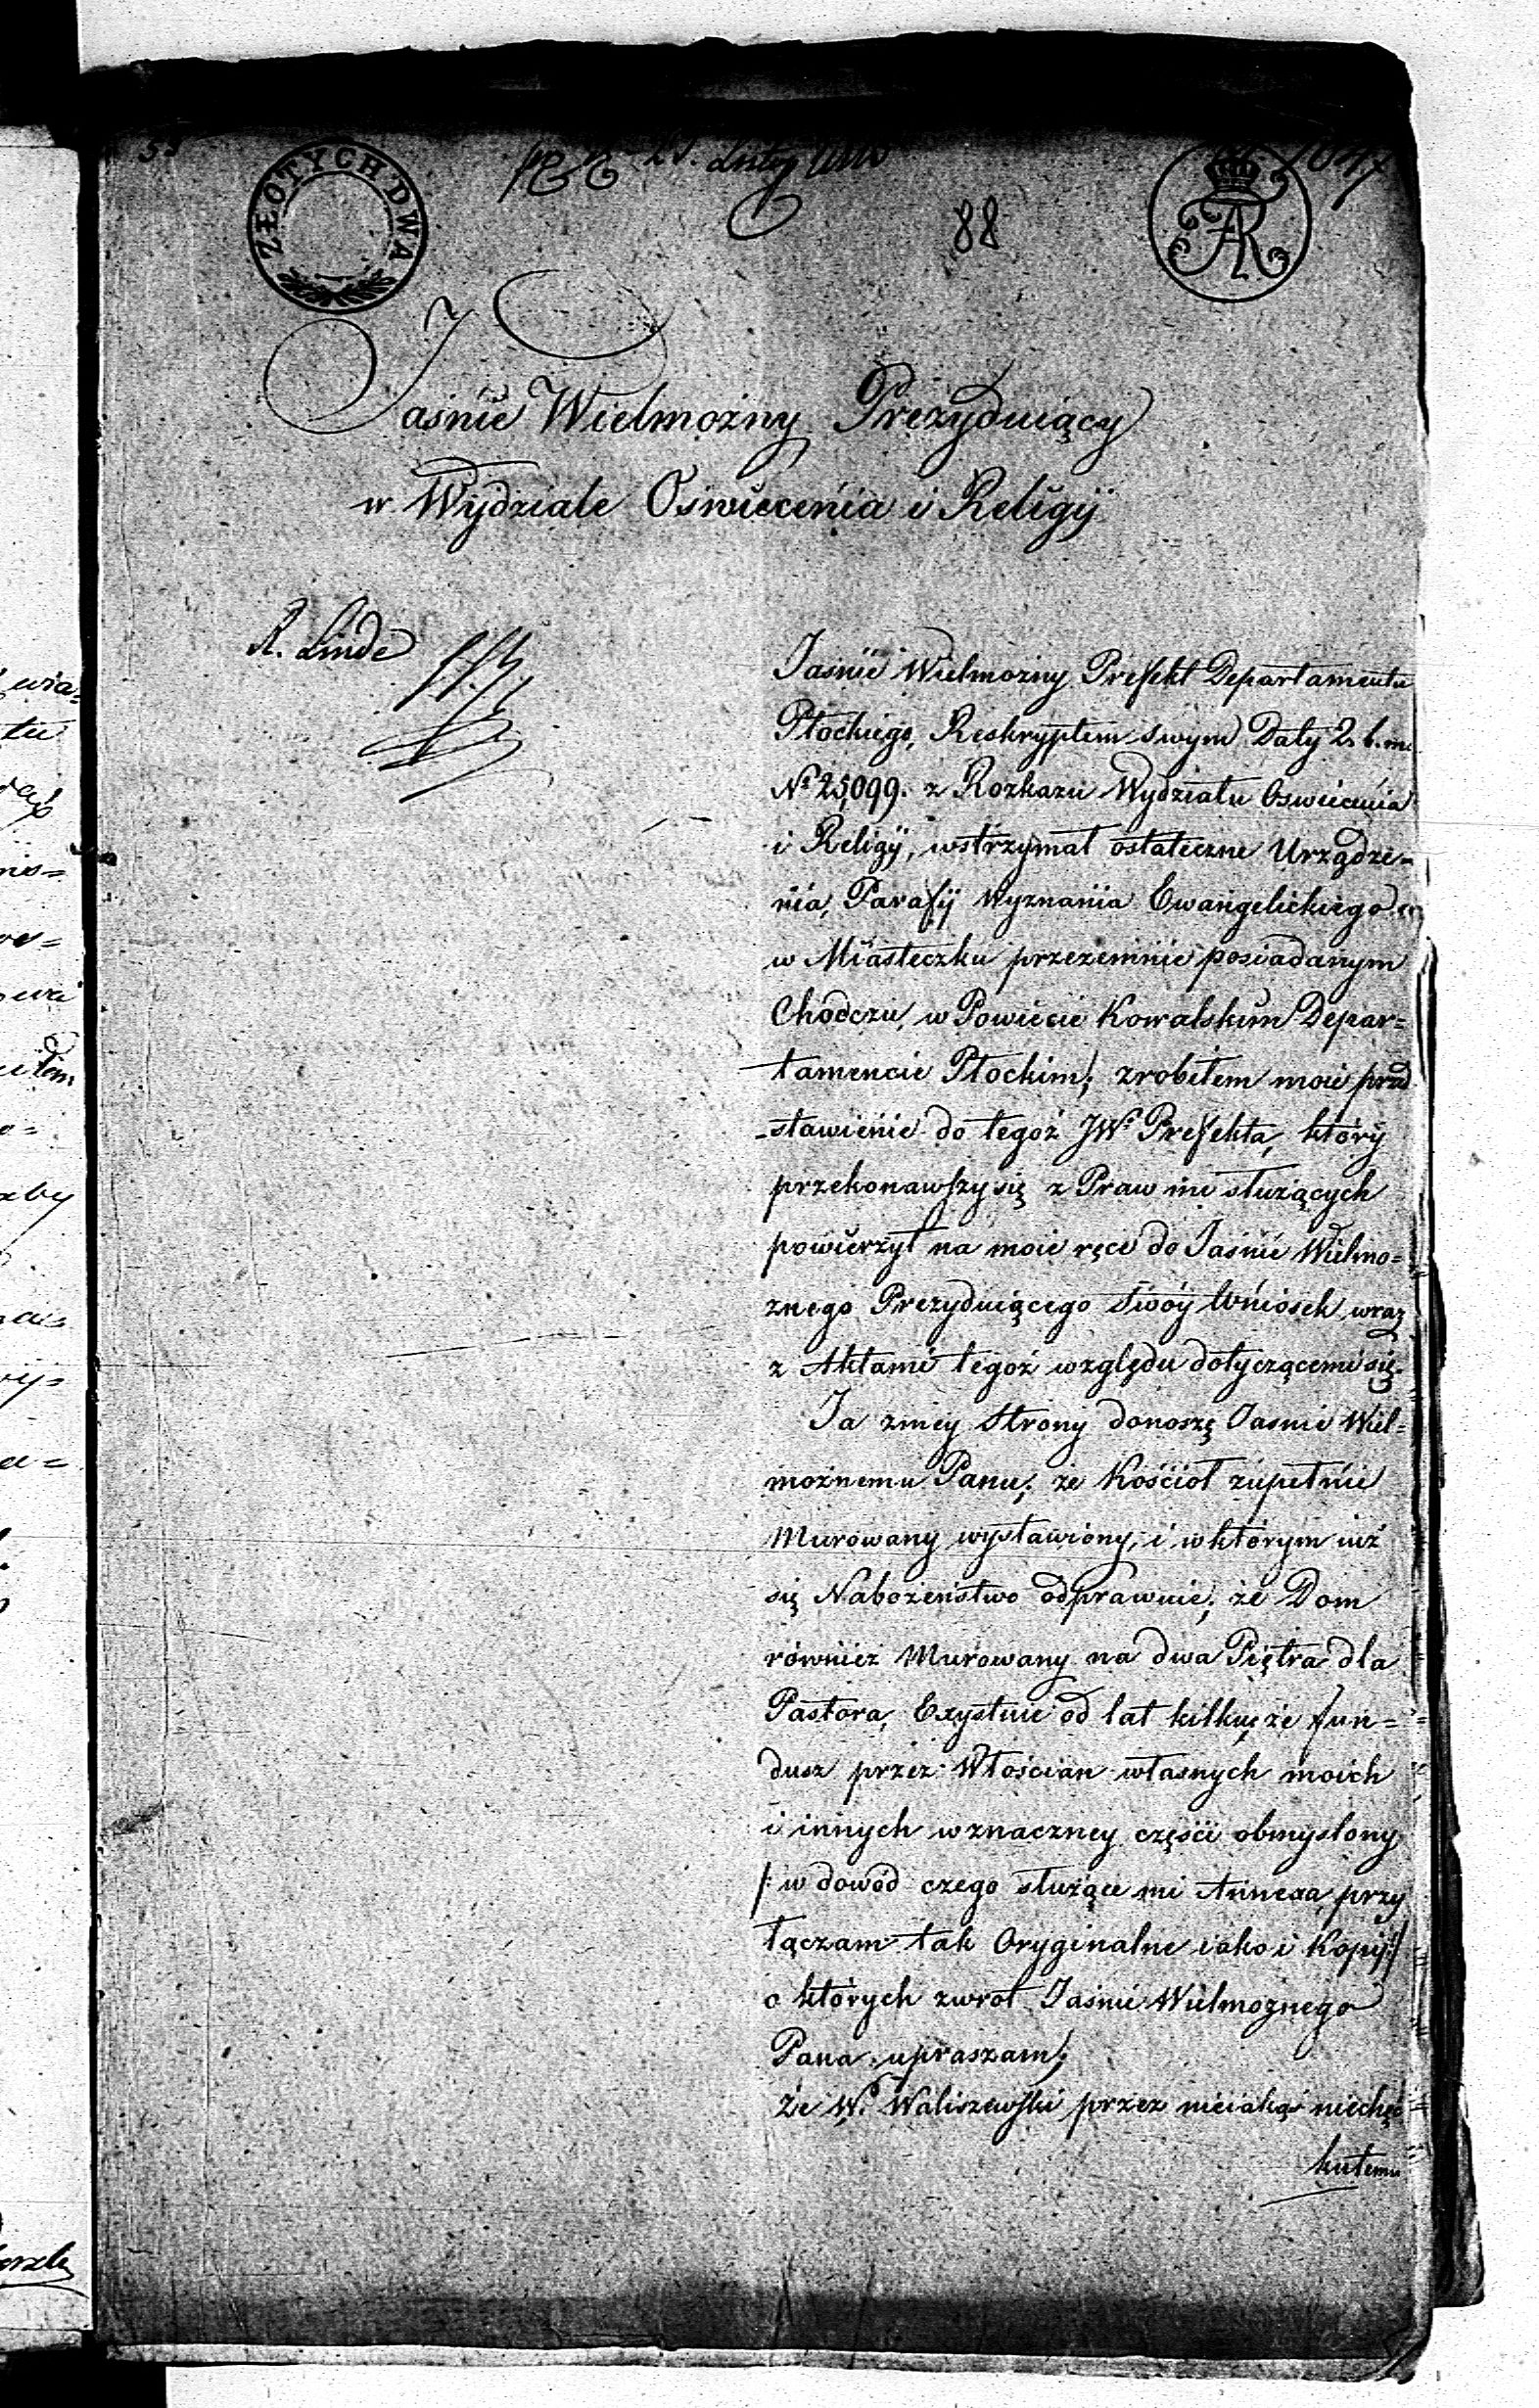 ZŁOTYCH DWA
Luty
88
AR
Jaśnie Wielmożny Prezyduiący
w Wydziale Oświecenia i Religij
R. Linde
Jaśnie Wielmożny Prefekt Departamentu
Płockiego, Reskryptem swym Daty 2. b. m.
No 25,099. z Rozkazu Wydziału Oswiecenia
i Religij, wstrzymał ostateczne Urządze=
nia, Parafij Wyznania Ewangelickiego
w Miasteczku przezemnie posiadanym
Chodczu, w Powiecie Kowalskim Depar=
tamencie Płockim; zrobiłem moie przed
-stawienie do tegoż JWo Prefekta, który
przekonawszy się z Praw mi służących
powierzył na moie ręce do Jaśnie Wielmo=
żnego Prezyduiącego Swóy Wniosek, wraz
z Aktami tegoż względu dotyczącemi się.
Ja zmey Strony donoszę Jasnie Wiel=
możnemu Panu; że Kościoł zupełnie
Murowany wystawiony, i w którym iuż
się Nabożeństwo odprawuie; że Dom
również Murowany na dwa Piętra dla
Pastora, Exystuie od lat kilku, że fun=
dusz przez Włościan własnych moich
i innych w znaczney części obmyslony,
/: w dowód czego służące mi Annexa, przy
łączam tak Oryginalne iako i Kopij :/
o których zwrot Jaśnie Wielmożnego
Pana upraszam;
Że W. Waliszewski przez nieiakąś niechęć
ku temu